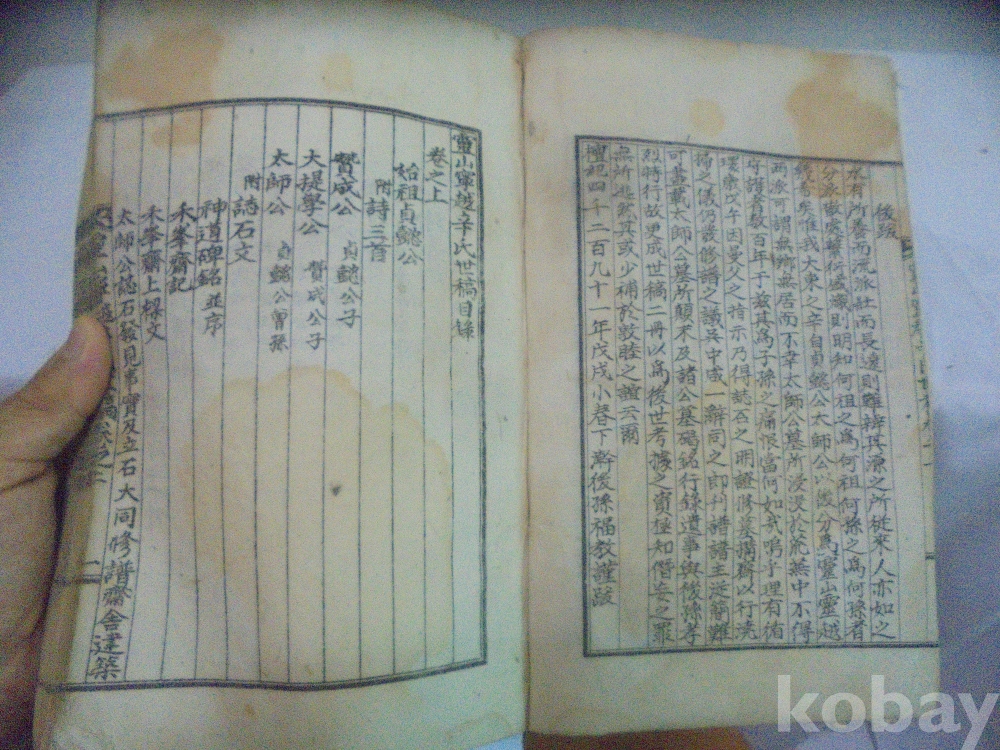 後跋
水有所養而流派壯而長遠則難辨其源之所從來人亦如之
分派散處繁衍盛滿則明知何祖之爲何祖何孫之爲何孫者
鮮矣唯我大東之辛自貞懿公太師公以後分爲靈山靈越
兩派可謂無鄕無居而不幸太師公墓所浸浸於荒蕪中不得
守護者數百年于玆其爲子孫之痛恨當何如哉嗚乎理有循
環歲戊午因曼父之指示乃得誌石之明證修墓搆齋以行澆
掃之儀仍發修譜之議吳中咸一辭同之卽刊譜譜主從簡難
可盡載太師公墓所顚末及諸公墓碣銘行錄遺事與後孫孝
烈特行故更成世稿二冊以爲後世考據之資極知僭妄之罪
無所逃然其或少補於敦睦之誼云爾
檀紀四千二百九十一年戊戌小春下澣後孫福敎謹跋
靈山寧越辛氏世稿目錄
卷之上
始祖貞懿公
附詩三首
贊成公 貞懿公子
大提學公 贊成公子
太師公 貞懿公曾孫
附誌石文
神道碑銘並序
禾峯齋記
禾峯齋上樑文
太師公誌石發見事實及立石大同修譜齋舍建築
kobay